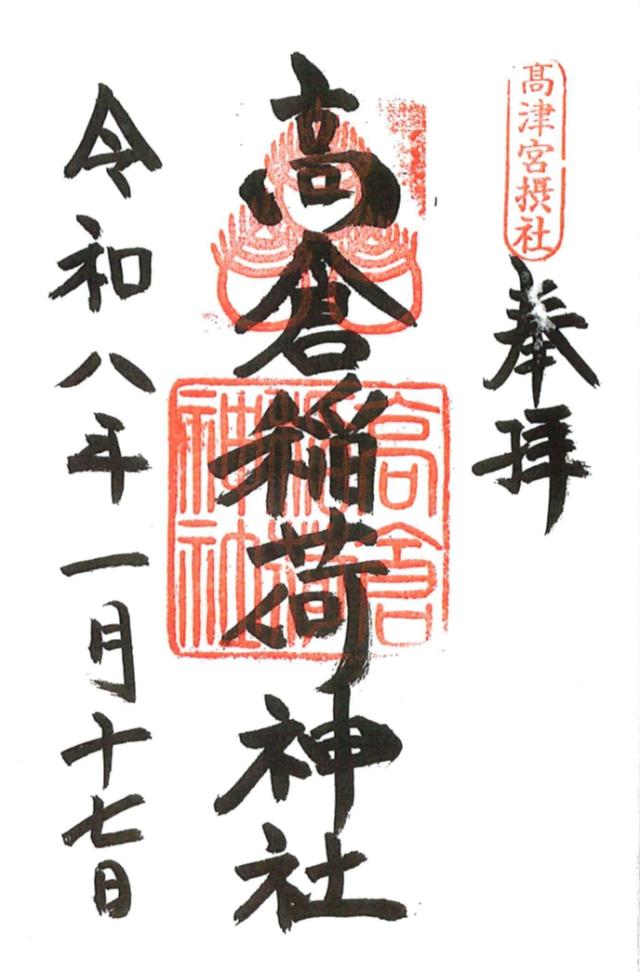 髙津宮摂社
奉拝
高倉稲荷神社
高倉稲荷神社
令和八年一月十七日